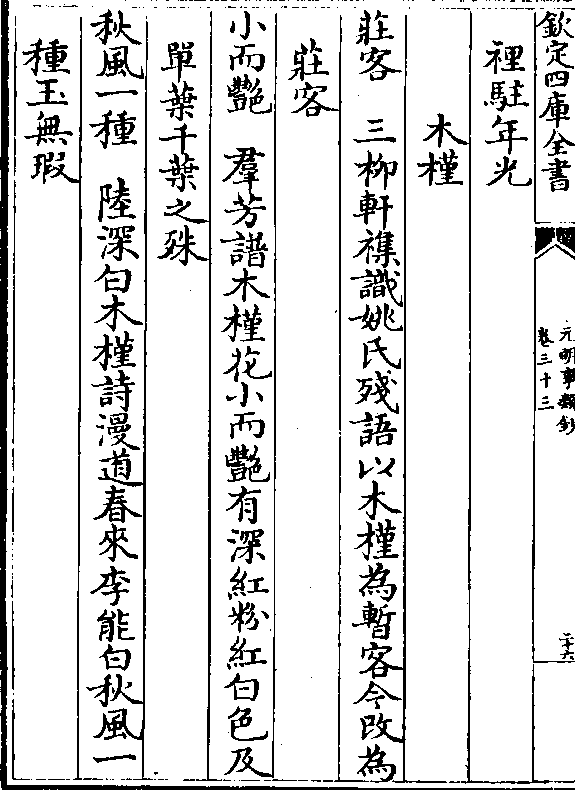 欽定四庫全書
元明事類鈔
卷三十三
二十六
裡駐年光
木槿
莊客　三柳軒襍識姚氏殘語以木槿為暫客今改為
莊客
小而艷　羣芳譜木槿花小而艷有深紅粉紅白色及
單葉千葉之殊
秋風一種　陸深白木槿詩漫道春來李能白秋風一
種玉無瑕